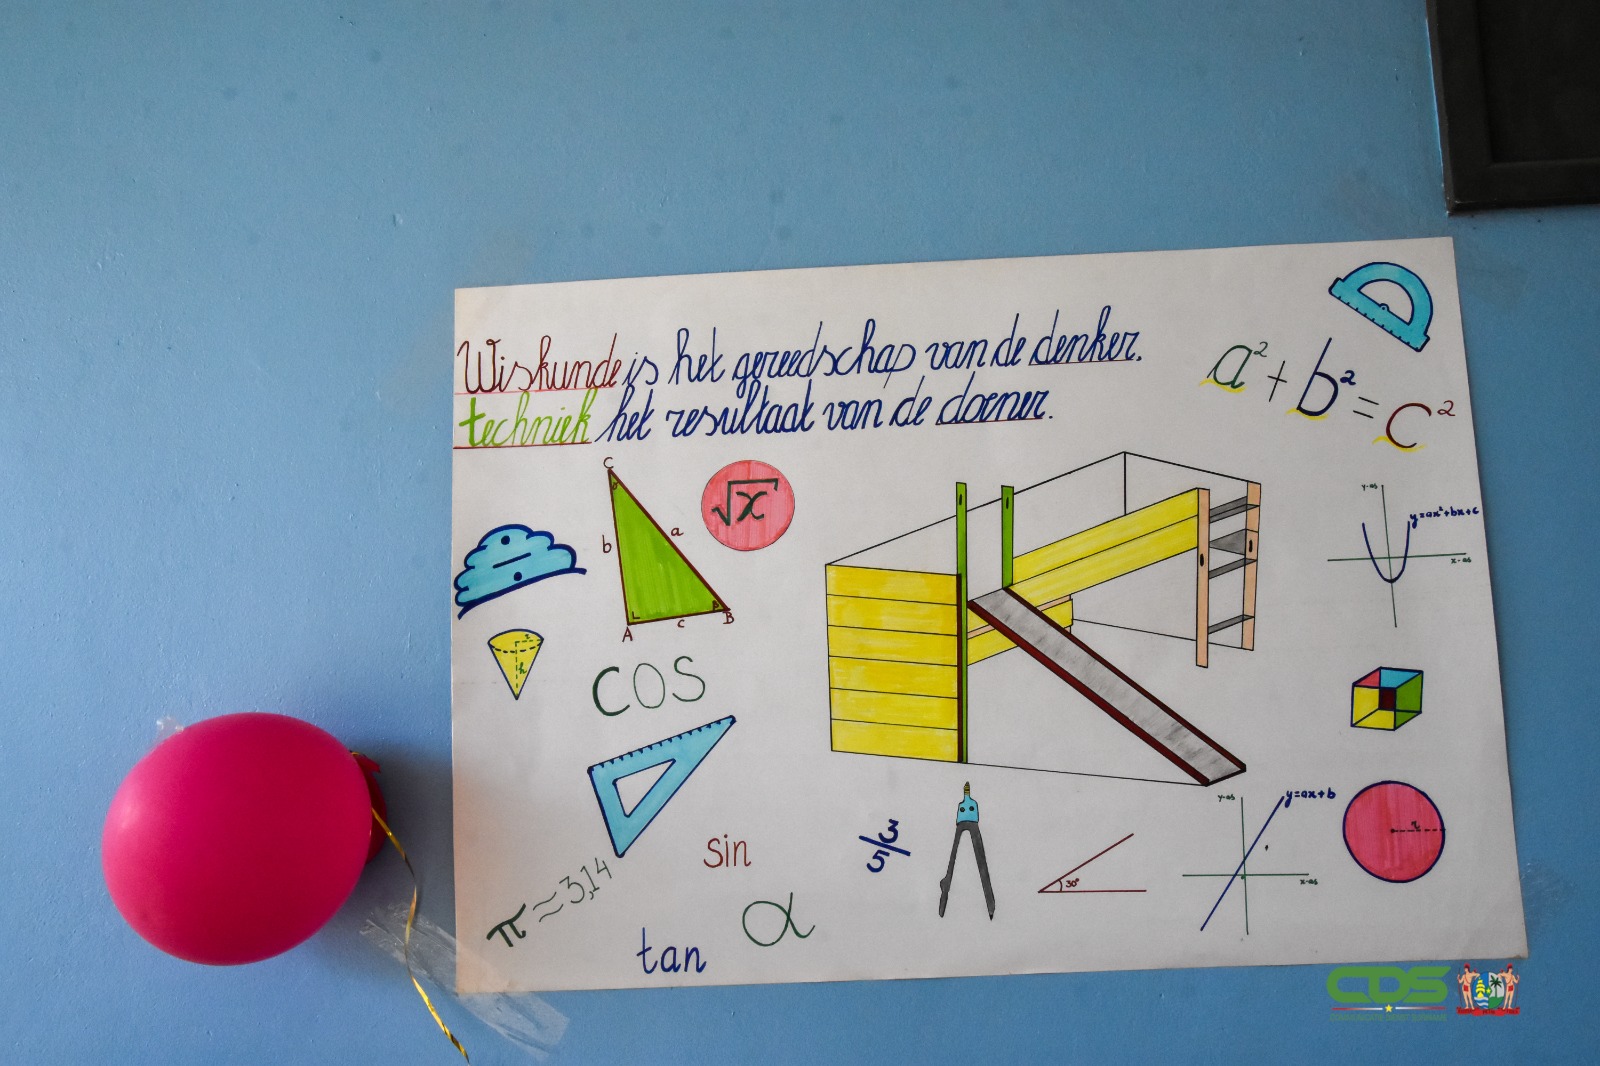 Wiskunde is het gereedschap van de denker.
techniek het resultaat van de doener.
a² + b² = c²
C
√x
b
a
y-as
y=ax²+bx+c
x-as
A
c
B
r
h
cos
y-as
y=ax+b
r
sin
3/5
30°
x-as
π ≈ 3,14
α
tan
CDS